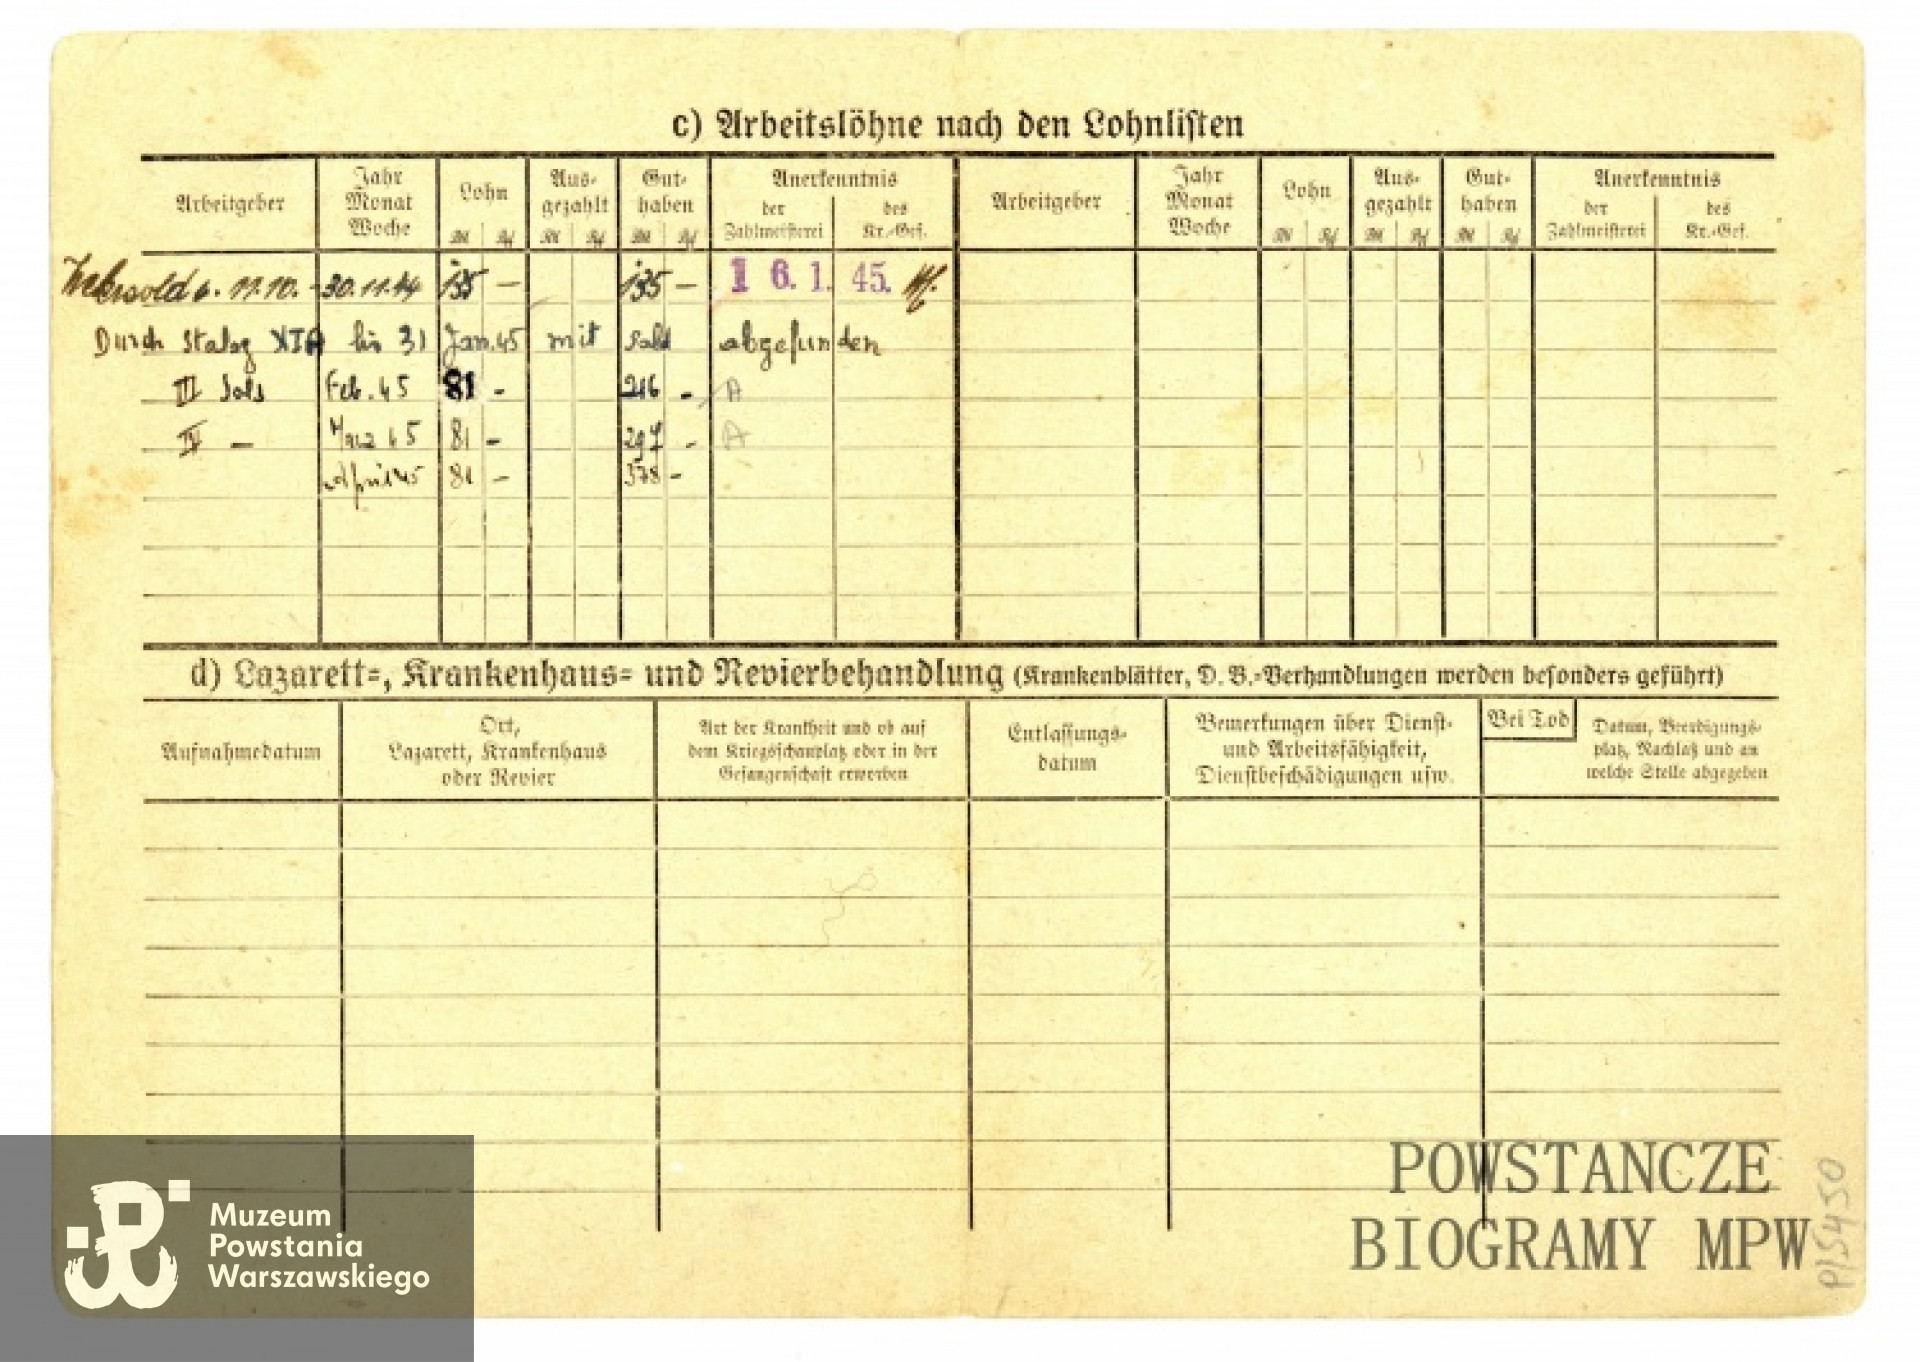 c) Arbeitslöhne nach den Lohnlisten
Arbeitgeber
Jahr
Monat
Woche
Lohn
RM Rpf
Aus-
gezahlt
RM Rpf
Gut-
haben
RM Rpf
Anerkenntnis
der
Zahlmeisterei
des
Kr.-Gef.
Arbeitgeber
Jahr
Monat
Woche
Lohn
RM Rpf
Aus-
gezahlt
RM Rpf
Gut-
haben
RM Rpf
Anerkenntnis
der
Zahlmeisterei
des
Kr.-Gef.
11.10. - 30.11.44 135 — 135 — 16. 1. 45.
Durch Stalag XIA bis 31 Jan. 45 mit Sold abgefunden
III Feb. 45 81 - 216 - A
IV — März 45 81 - 297 - A
April 45 81 - 378 -
d) Lazarett-, Krankenhaus- und Revierbehandlung (Krankenblätter, D. B.-Verhandlungen werden besonders geführt)
Aufnahmedatum
Ort,
Lazarett, Krankenhaus
oder Revier
Art der Krankheit und ob auf
dem Kriegsschauplatz oder in der
Gefangenschaft erworben
Entlassungs-
datum
Bemerkungen über Dienst-
und Arbeitsfähigkeit,
Dienstbeschädigungen usw.
Bei Tod
Datum, Beerdigungs-
platz, Nachlaß und an
welche Stelle abgegeben
POWSTANCZE
BIOGRAMY MPW
P/5450
Muzeum
Powstania
Warszawskiego